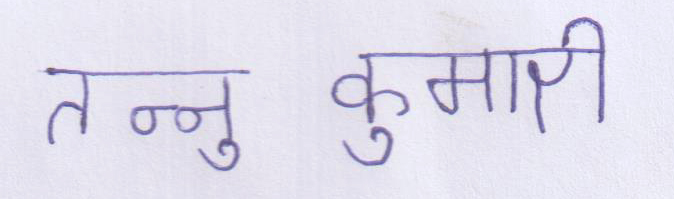 तन्नु कुमारी